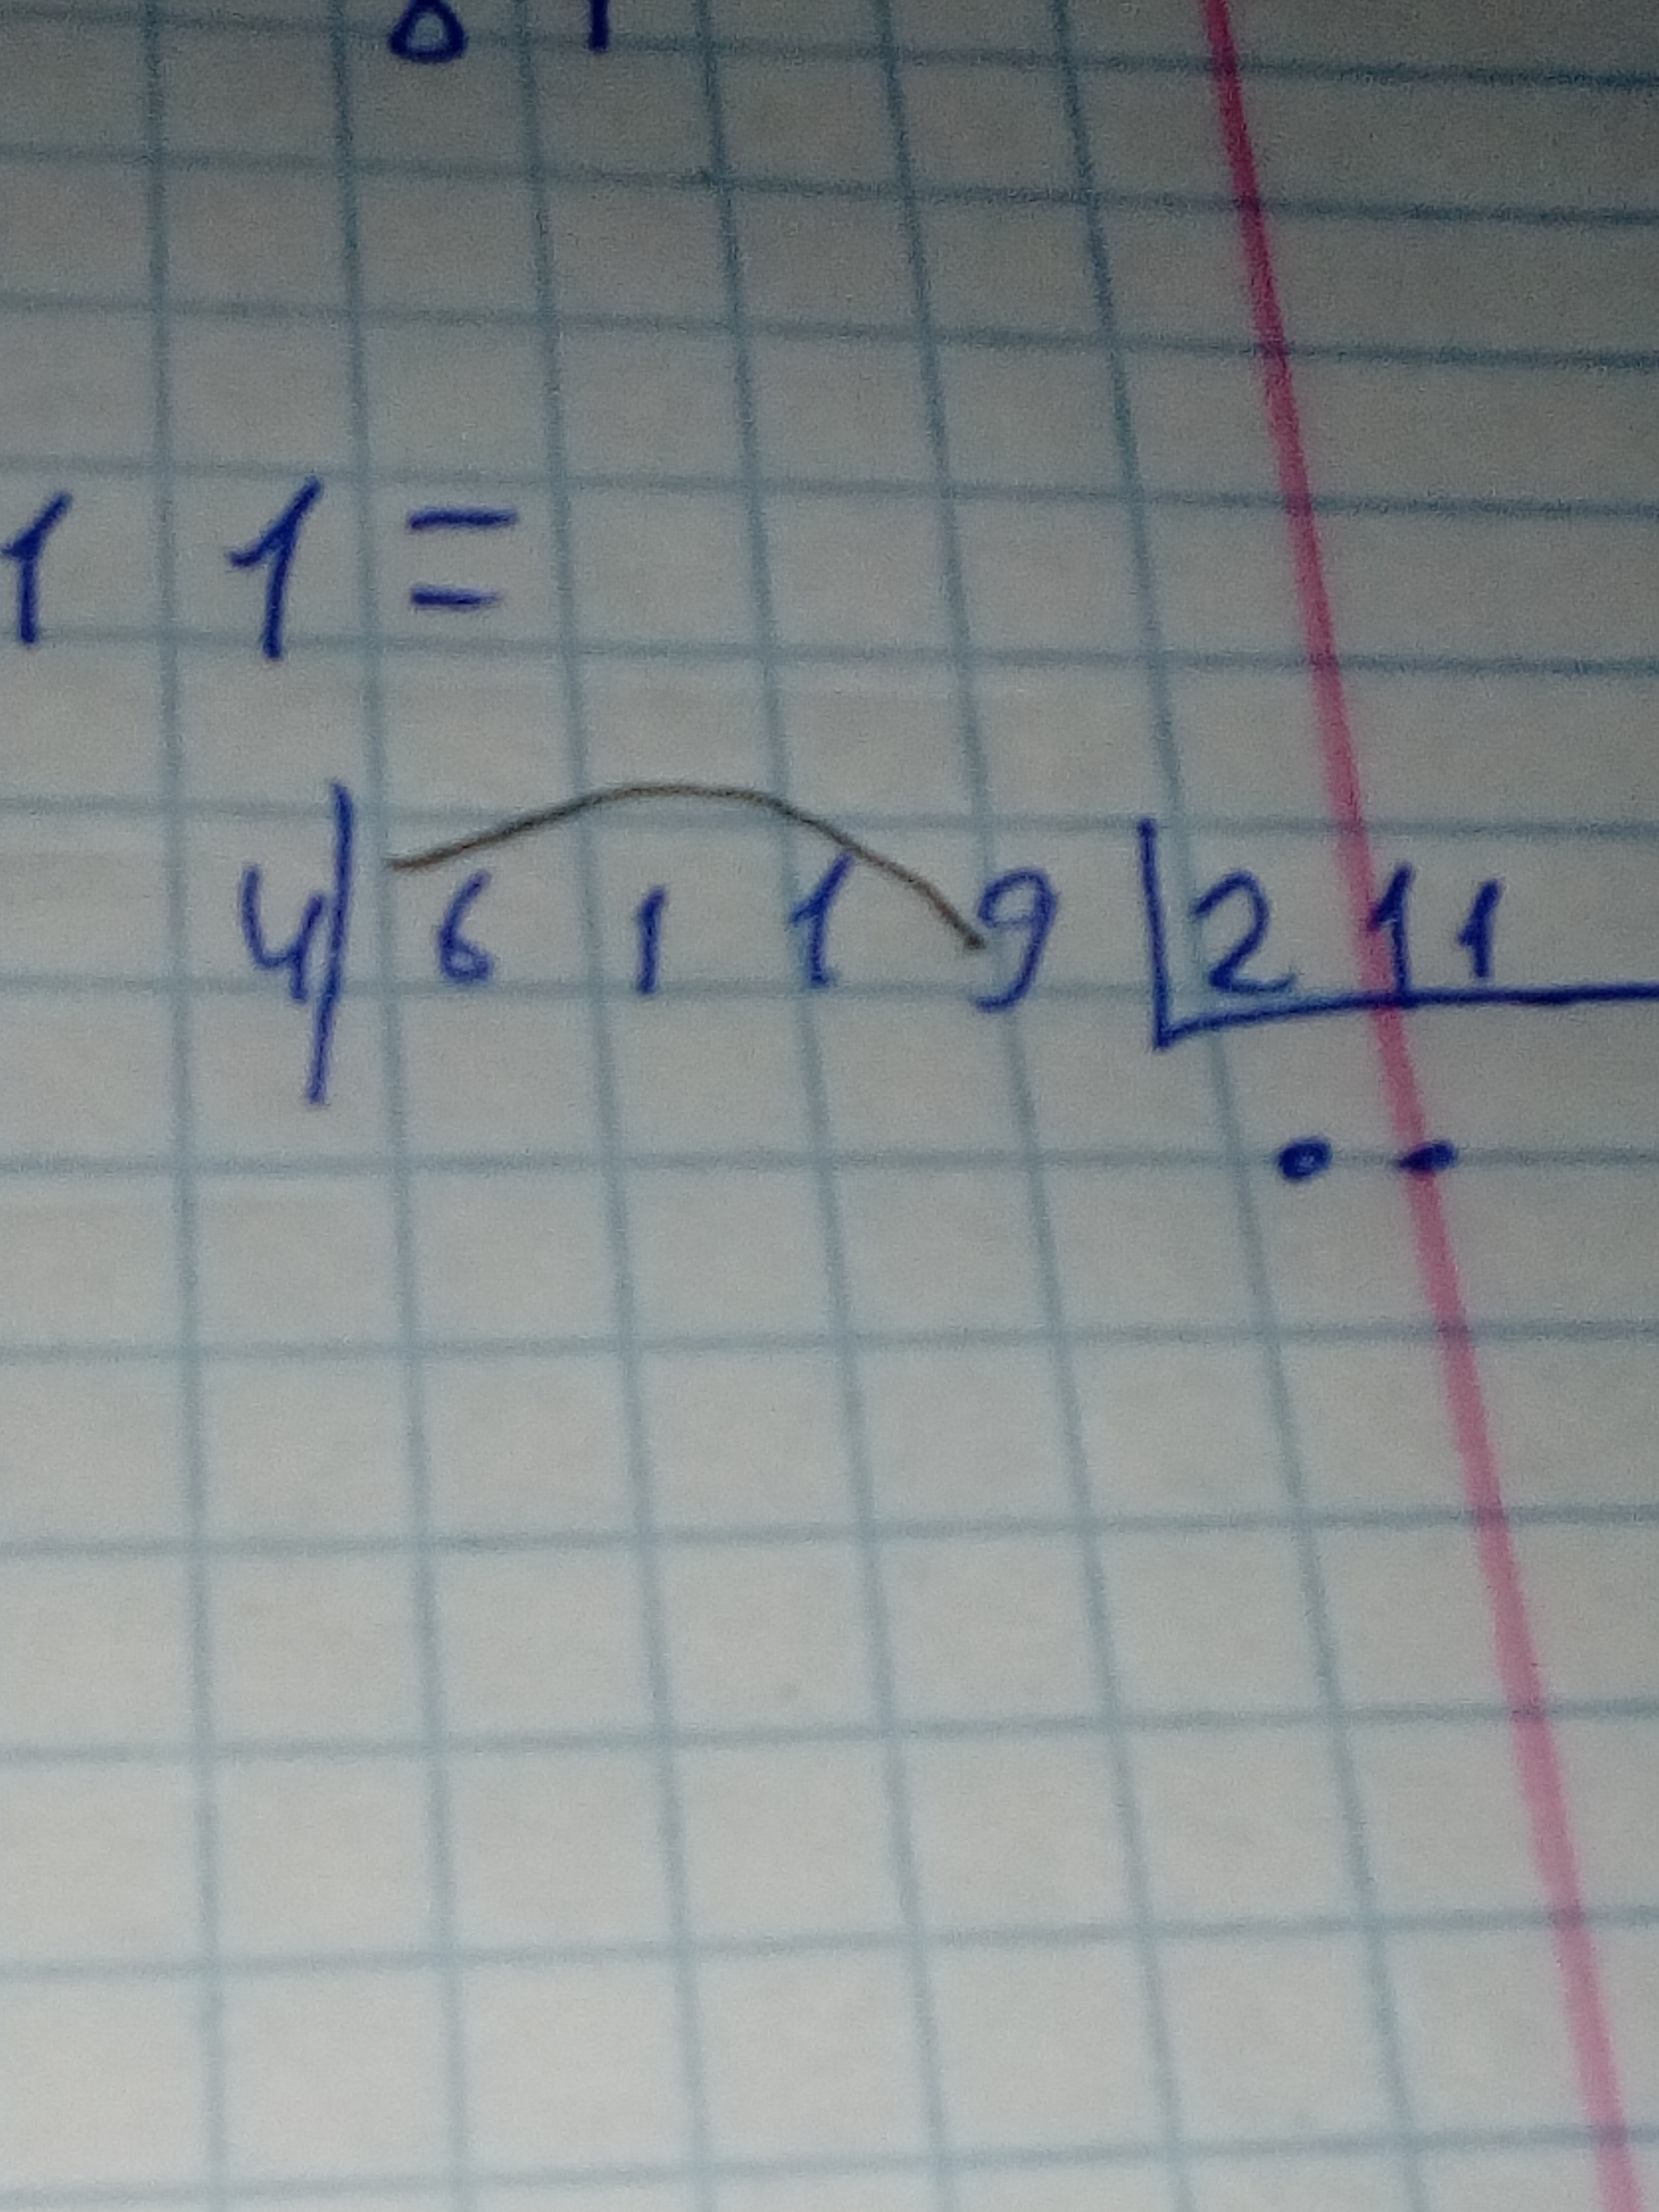 1 1 =
4) 6 1 1 9 | 2 1 1
. .